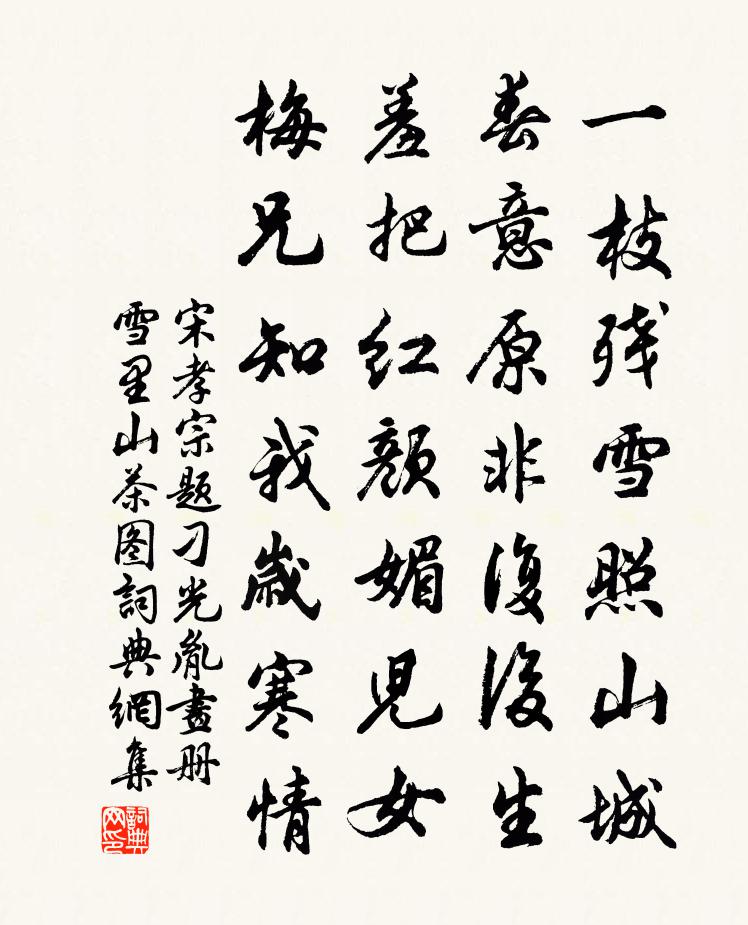 一枝残雪照山城
春意原非復後生
羞把红颜媚児女
梅兄知我歲寒情
宋孝宗题刁光胤畫册
雪里山茶图詞典網集
詞典网印